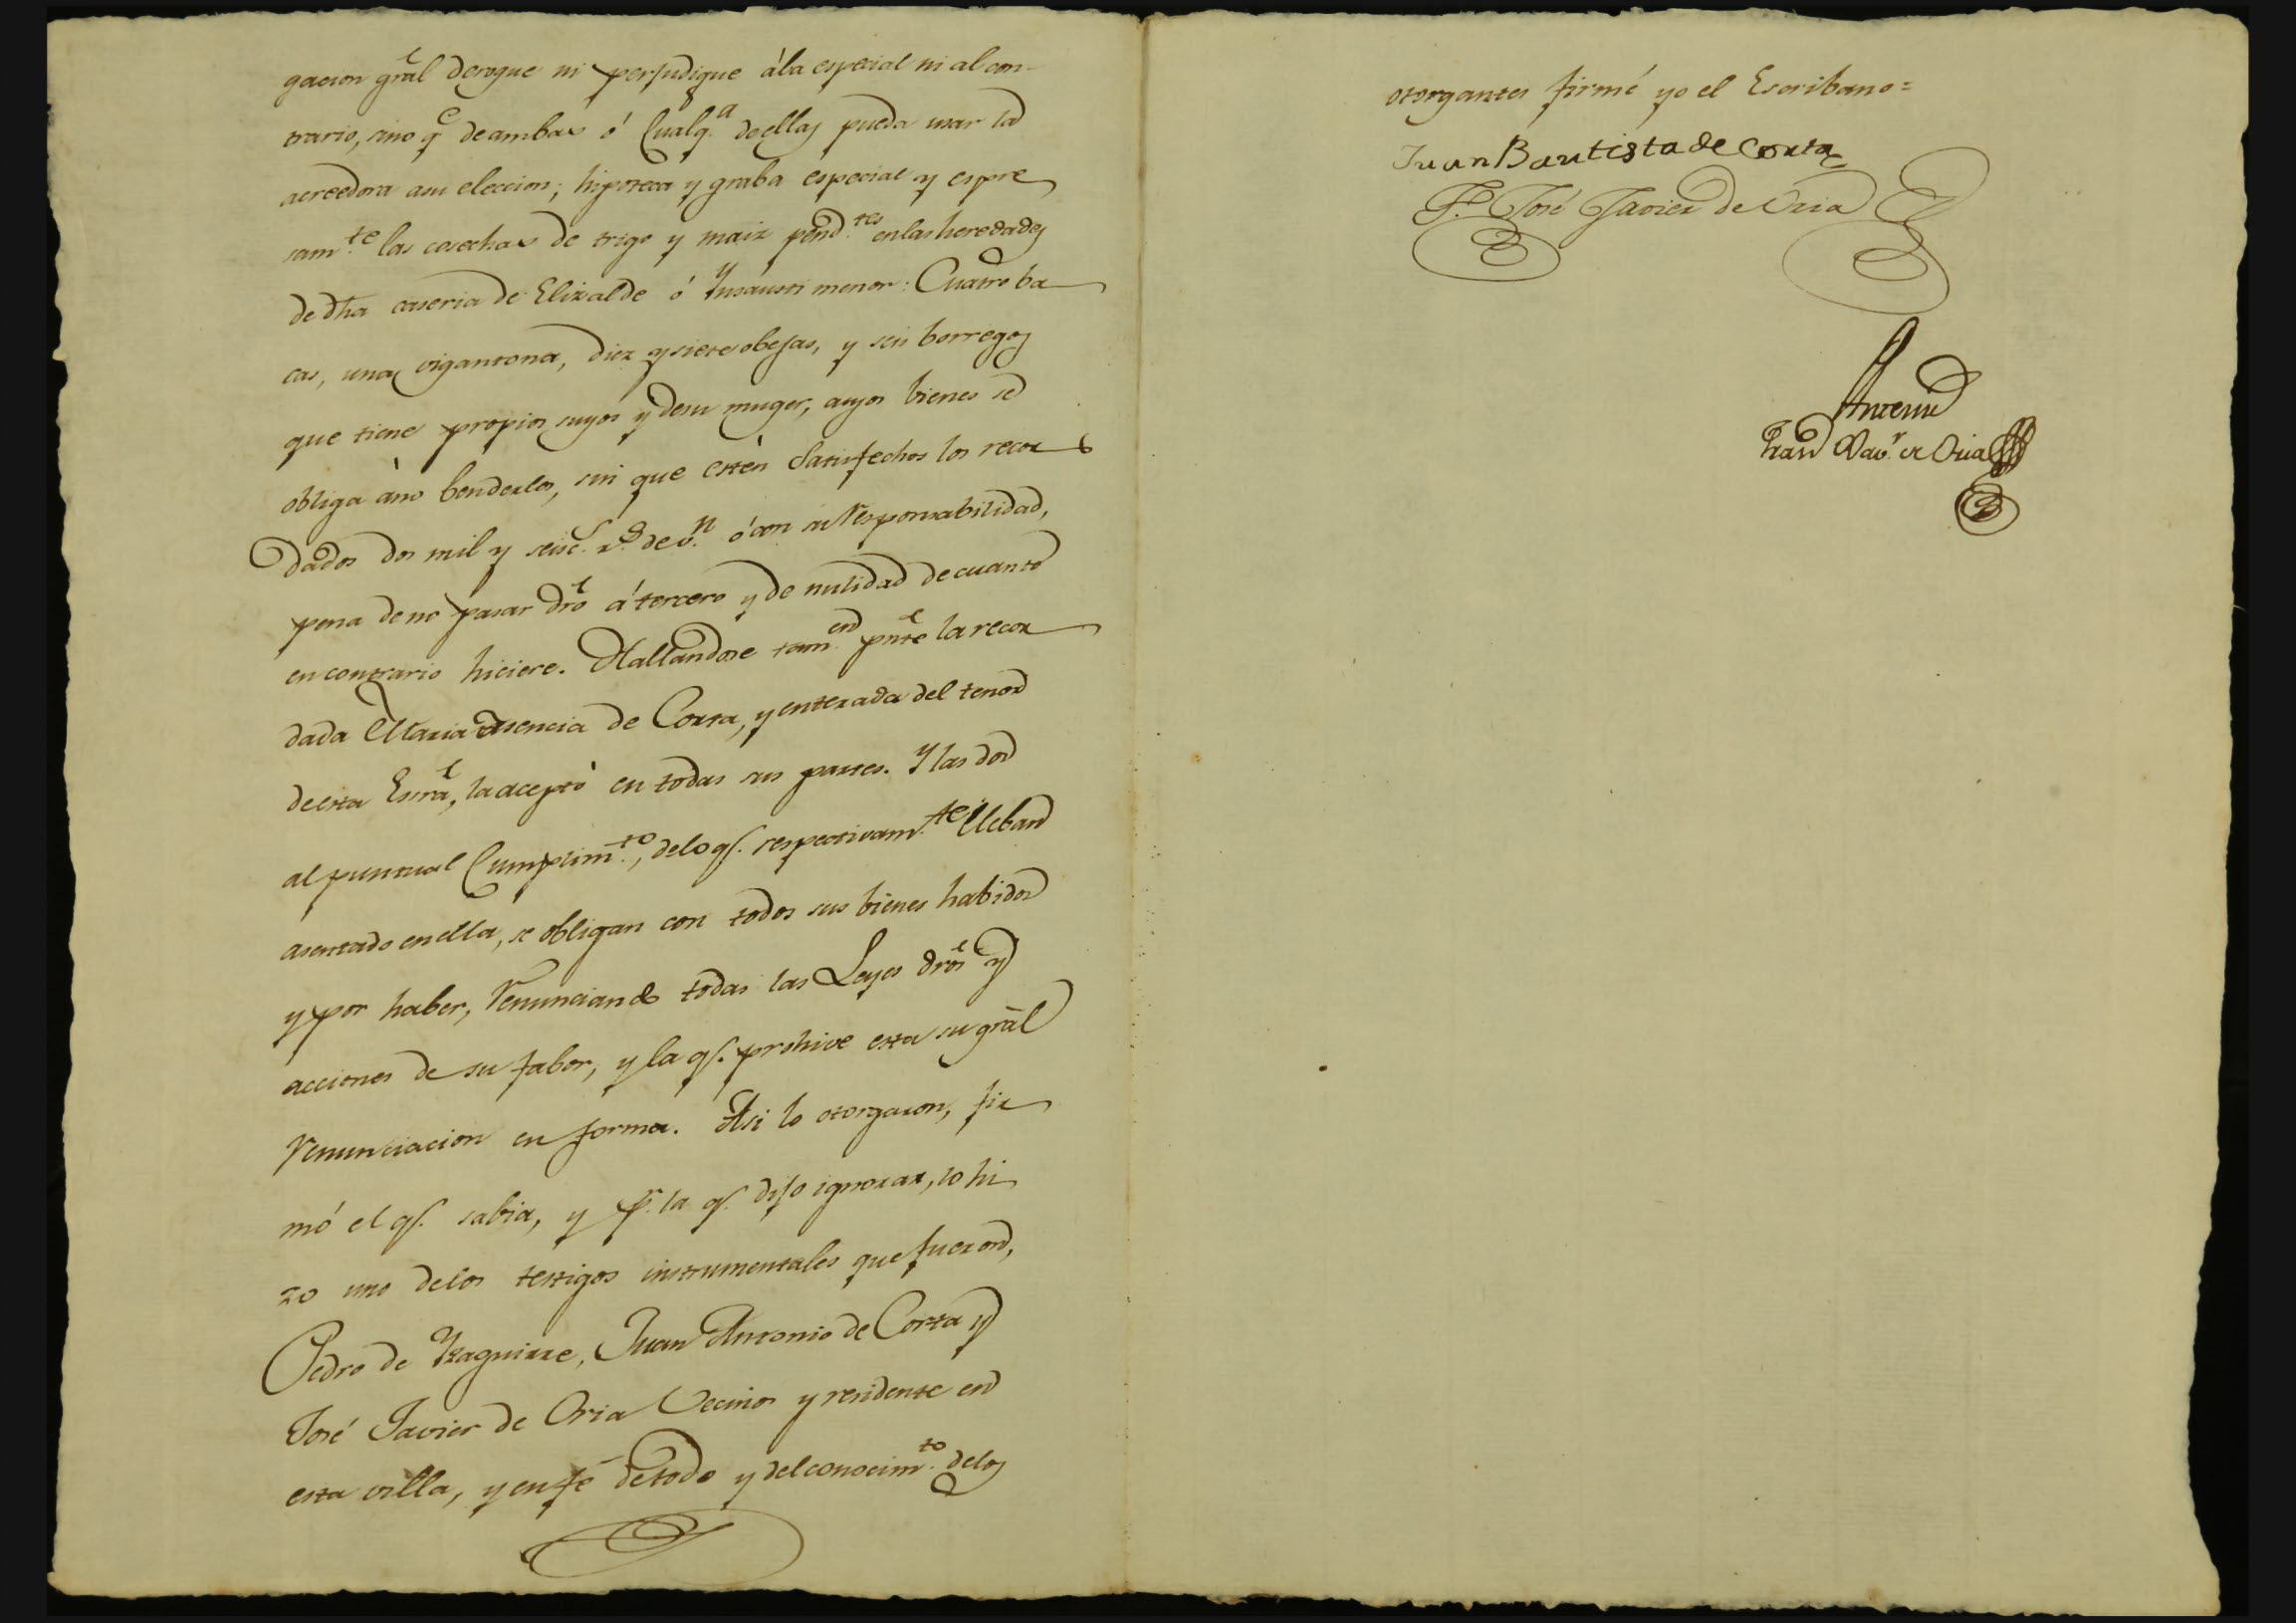 gacion gral derogue ni perjudique á la especial ni al con-
trario, sino qe de ambas ó Cualq.a de ellas pueda usar la
acreedora a su eleccion; hipoteca y graba especial y espre
sam.te las cosechas de trigo y maiz pend.tes en las heredades
de dha caseria de Elizalde ó Ynsausti menor: Cuatro ba
cas, una vigantona, diez y siete obejas, y seis borregos
que tiene propios suyos y de su muger, cuyos bienes se
obliga á no benderlos, sin que estén Satisfechos los recor
dados dos mil y seisc.s r.s de v.n ó con su responsabilidad,
pena de no pasar dro á tercero y de nulidad de cuanto
en contrario hiciere. Hallandose tam.en pnte la recor
dada Maria Asencia de Corta, y enterada del tenor
de esta Esra, la aceptó en todas sus partes. Y las dos
al puntual Cumplim.to, de lo q. respectivam.te lleban
asentado en ella, se obligan con todos sus bienes habidos
y por haber, renunciando todas las Leyes dros y
acciones de su fabor, y la q. prohive esta su gral
renunciacion en forma. Asi lo otorgaron, fir
mó el q. sabia, y p.r la q. dijo ignorar, lo hi
zo uno de los testigos instrumentales que fueron,
Pedro de Yzaguirre, Juan Antonio de Corta y
José Javier de Oria Vecinos y residente en
esta villa, y en fé de todo y del conocim.to de los
otorgantes firmé yo el Escribano=
Juan Bautista de Corta
T.o José Javier de Oria
Antemi
Fran Xav.r de Oria